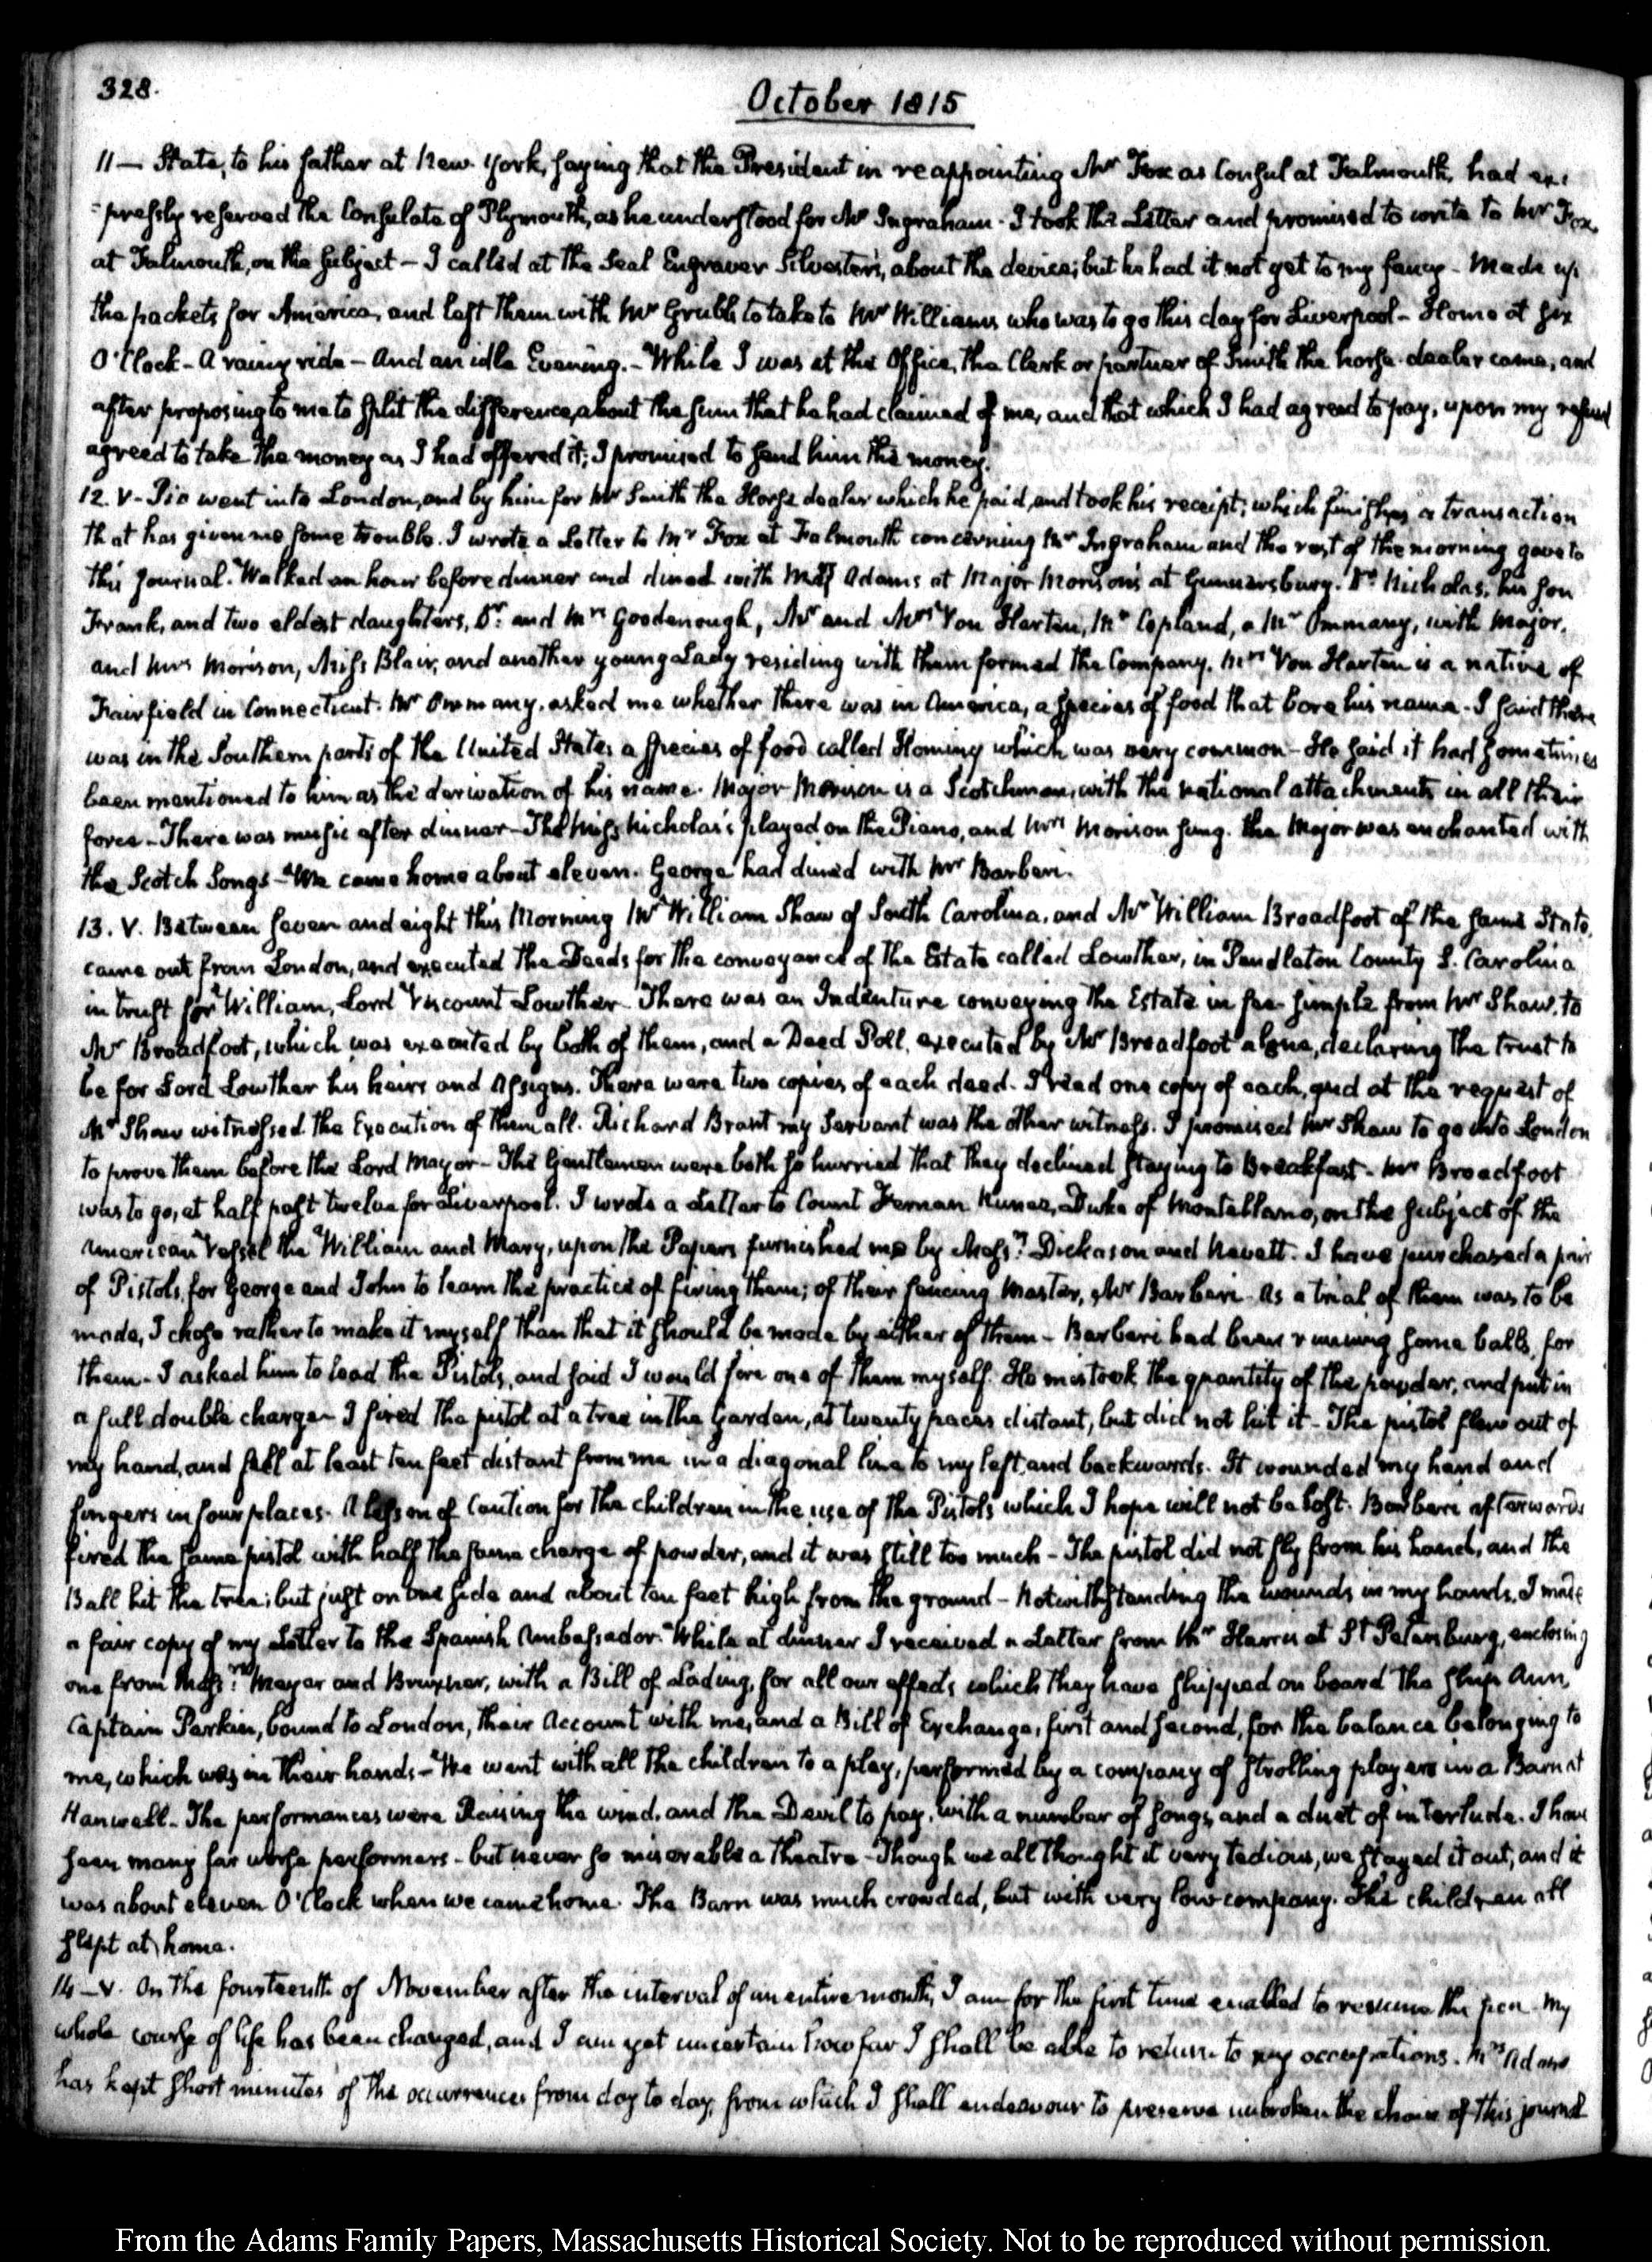 328.
October 1815
11— State, to his father at New-York, saying that the President in reappointing Mr Fox as Consul at Falmouth, had ex-
-pressly reserved the Consulate of Plymouth, as he understood for Mr Ingraham - I took the Letter and promised to write to Mr Fox
at Falmouth, on the subject — I called at the Seal Engraver Silvester's, about the device; but he had it not yet to my fancy - Made up
the packets for America, and left them with Mr Grubb to take to Mr Williams who was to go this day for Liverpool - Home at six
O'Clock - A rainy ride — And an idle Evening. - While I was at the Office, the Clerk or partner of Smith the horse-dealer came, and
after proposing to me to split the difference, about the sum that he had claimed of me, and that which I had agreed to pay, upon my refusal
agreed to take the money as I had offered it; I promised to send him the money.
12. V - Pio went into London, and by him for Mr Smith the Horse dealer which he paid, and took his receipt; which finishes a transaction
that has given me some trouble. I wrote a Letter to Mr Fox at Falmouth concerning Mr Ingraham and the rest of the morning gave to
this Journal. Walked an hour before dinner and dined with Mrs Adams at Major Morison's at Gunnersbury. Dr Nicholas, his son
Frank, and two eldest daughters, Dr and Mrs Goodenough, Mr and Mrs Von Harten, Mr Copland, a Mr Ommany, with Major,
and Mrs Morison, Miss Blair, and another young Lady residing with them formed the Company. Mrs Von Harten is a native of
Fairfield in Connecticut. Mr Ommany, asked me whether there was in America, a species of food that bore his name - I said there
was in the Southern parts of the United States a species of food called Hominy which was very common - He said it had sometimes
been mentioned to him as the derivation of his name. Major Morison is a Scotchman, with the national attachments in all their
force - There was music after dinner - The Miss Nicholas's played on the Piano, and Mrs Morison sung. the Major was enchanted with
the Scotch Songs - We came home about eleven. George had dined with Mr Barberi.
13. V. Between seven and eight this Morning Mr William Shaw of South Carolina, and Mr William Broadfoot of the same State,
came out from London, and executed the Deeds for the conveyance of the Estate called Lowther, in Pendleton County S. Carolina
in trust for William, Lord Viscount Lowther - There was an Indenture conveying the Estate in fee-simple from Mr Shaw, to
Mr Broadfoot, which was executed by both of them, and a Deed Poll, executed by Mr Broadfoot alone, declaring the trust to
be for Lord Lowther his heirs and Assigns. There were two copies of each deed - I read one copy of each, and at the request of
Mr Shaw witnessed the Execution of them all. Richard Brant my Servant was the other witness. I promised Mr Shaw to go into London
to prove them before the Lord Mayor - The Gentlemen were both so hurried that they declined staying to Breakfast - Mr Broadfoot
was to go, at half past twelve for Liverpool. I wrote a Letter to Count Fernan Nunez, Duke of Montellano, on the subject of the
American Vessel the William and Mary, upon the Papers furnished me by Messrs Dickason and Nevett. I have purchased a pair
of Pistols, for George and John to learn the practice of firing them; of their fencing Master, Mr Barberi - As a trial of them was to be
made, I chose rather to make it myself than that it should be made by either of them - Barberi had been running some balls, for
them - I asked him to load the Pistols, and said I would fire one of them myself. He mistook the quantity of the powder, and put in
a full double charge - I fired the pistol at a tree in the Garden, at twenty paces distant, but did not hit it - The pistol flew out of
my hand, and fell at least ten feet distant from me in a diagonal line to my left, and backwards. It wounded my hand and
fingers in four places. A lesson of Caution for the children in the use of the Pistols which I hope will not be lost. Barberi afterwards
fired the same pistol with half the same charge of powder, and it was still too much - The pistol did not fly from his hand, and the
Ball hit the tree; but just on one side and about ten feet high from the ground - Notwithstanding the wounds in my hands, I made
a fair copy of my Letter to the Spanish Ambassador. While at dinner I received a Letter from Mr Harris at St Petersburg, enclosing
one from Messrs Meyer and Bruxner, with a Bill of Lading, for all our effects which they have shipped on board the ship Ann,
Captain Perkin, bound to London, their Account with me, and a Bill of Exchange, first and second, for the balance belonging to
me, which was in their hands - We went with all the children to a play, performed by a company of strolling players in a Barn at
Hanwell - The performances were Raising the wind, and the Devil to pay, with a number of songs, and a duet of interlude. I have
seen many far worse performers - but never so miserable a theatre - Though we all thought it very tedious, we stayed it out, and it
was about eleven O'Clock when we came home. The Barn was much crowded, but with very low company. The children all
slept at home.
14 — V. On the fourteenth of November after the interval of an entire month, I am for the first time enabled to resume the pen. My
whole course of life has been changed, and I am yet uncertain how far I shall be able to return to my occupations. Mrs Adams
has kept short minutes of the occurrences from day to day, from which I shall endeavour to preserve unbroken the chain of this journal
From the Adams Family Papers, Massachusetts Historical Society. Not to be reproduced without permission.